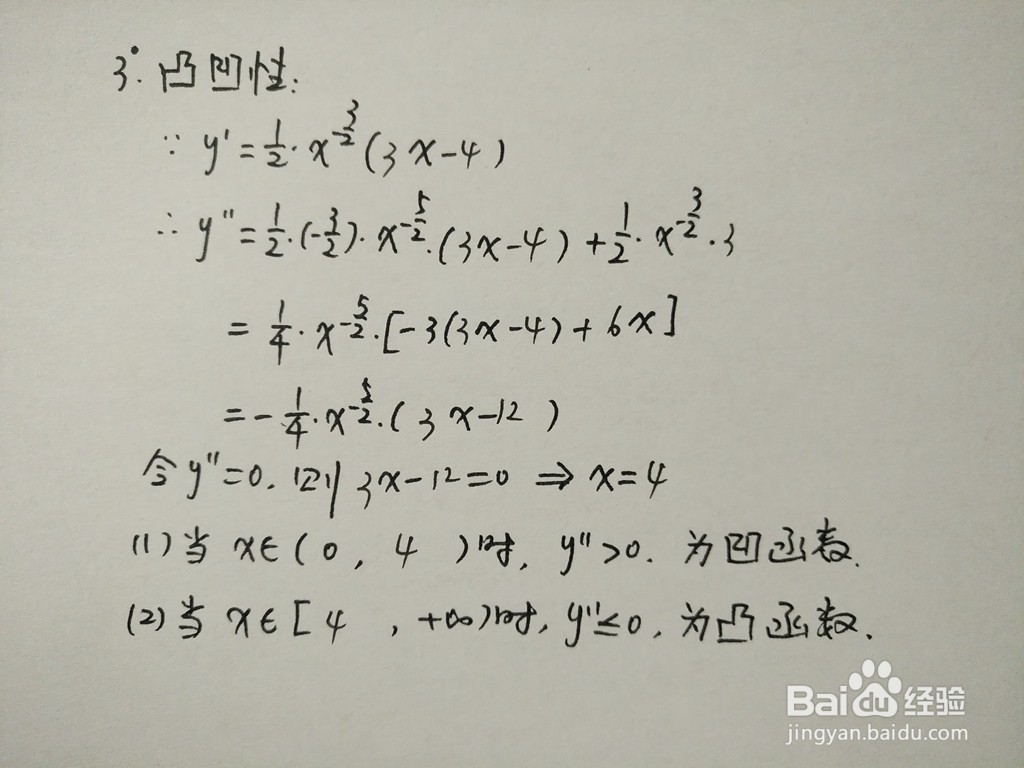 3°. 凸凹性:
∵ y' = 1/2 · x^(-3/2) (3x-4)
∴ y'' = 1/2 · (-3/2) · x^(-5/2) · (3x-4) + 1/2 · x^(-3/2) · 3
= 1/4 · x^(-5/2) · [-3(3x-4) + 6x]
= - 1/4 · x^(-5/2) · (3x-12)
令 y''=0. 则 3x-12=0 ⇒ x=4
(1) 当 x∈(0, 4)时, y''>0. 为凹函数.
(2) 当 x∈[4, +∞)时, y''≤0, 为凸函数.
Bai du 经验
jingyan.baidu.com